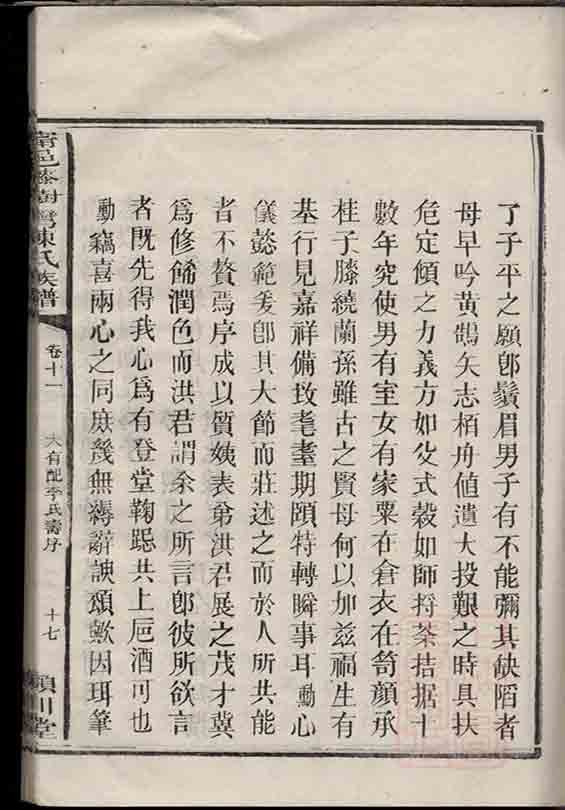 了子平之願卽鬚眉男子有不能彌其缺陷者
母早吟黃鵠矢志栢舟値遺大投艱之時具扶
危定傾之力義方如父式榖如師捋荼拮据十
數年究使男有室女有家粟在倉衣在笥顏承
桂子膝繞蘭孫雖古之賢母何以加兹福生有
基行見嘉祥備致耄耋期頤特轉瞬事耳動心
儀懿範爰卽其大節而莊述之而於人所共能
者不贅焉序成以質姨表弟洪君展之茂才冀
爲修餙潤色而洪君謂余之所言卽彼所欲言
者既先得我心爲有登堂鞠跽共上巵酒可也
動竊喜兩心之同庶幾無溽辭諛頌歟因珥筆
甯邑滕樹灣陳氏族譜
卷十一
大有配李氏壽序
十七
潁川堂